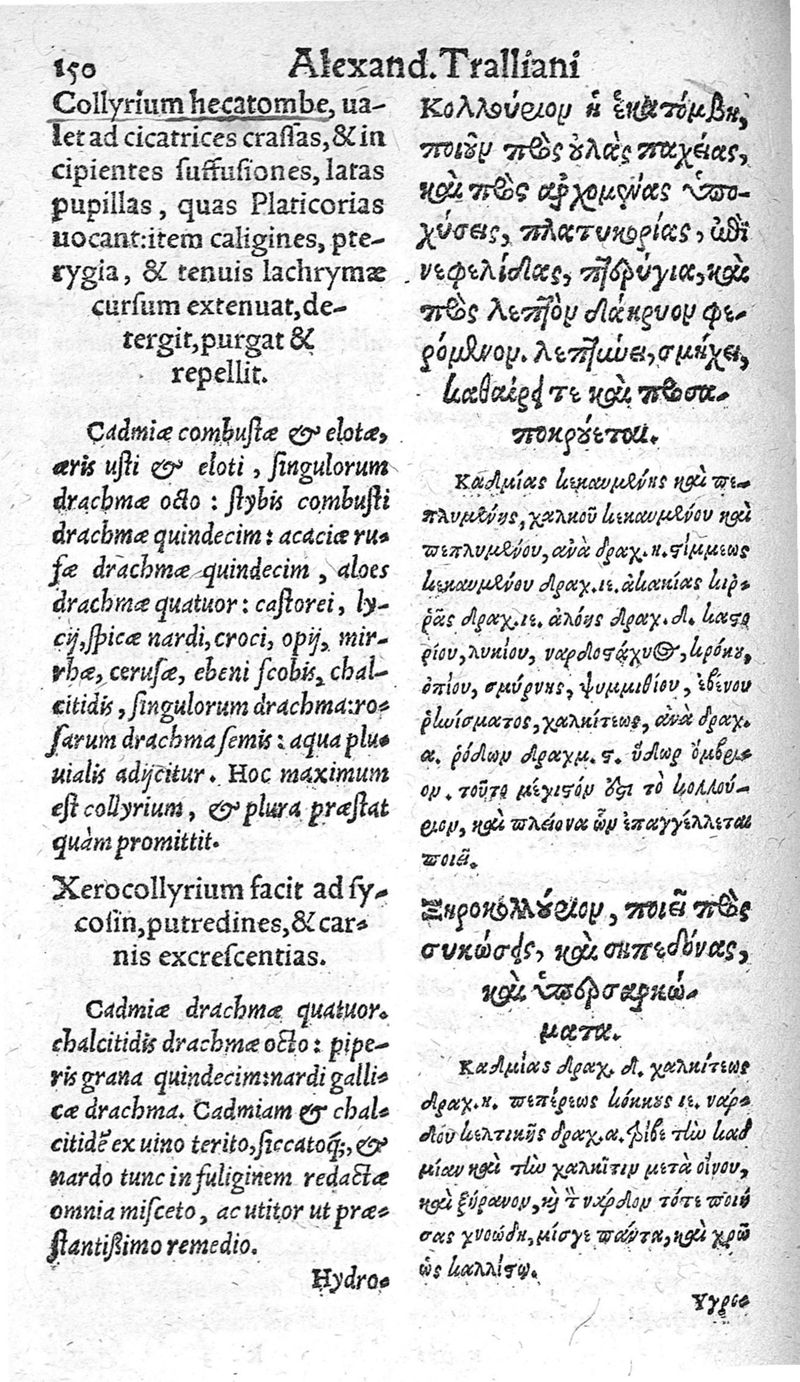 150 Alexand. Tralliani
Collyrium hecatombe, ua-
let ad cicatrices crassas, & in
cipientes suffusiones, latas
pupillas, quas Platicorias
uocant: item caligines, pte-
rygia, & tenuis lachrymæ
cursum extenuat, de-
tergit, purgat &
repellit.
Cadmiæ combustæ & elotæ,
æris usti & eloti, singulorum
drachmæ octo: stybis combusti
drachmæ quindecim: acaciæ ru-
fæ drachmæ quindecim, aloes
drachmæ quatuor: castorei, ly-
cij, spicæ nardi, croci, opij, mir-
rhæ, cerusæ, ebeni scobis, chal-
citidis, singulorum drachma: ro-
sarum drachma semis: aqua plu-
uialis adijcitur. Hoc maximum
est collyrium, & plura præstat
quàm promittit.
Xerocollyrium facit ad sy-
cosin, putredines, & car-
nis excrescentias.
Cadmiæ drachmæ quatuor.
chalcitidis drachmæ octo: pipe-
ris grana quindecim: nardi galli-
cæ drachma. Cadmiam & chal-
citidẽ ex uino terito, siccatoq́;, &
nardo tunc in fuliginem redacta
omnia misceto, ac utitor ut præ-
stantißimo remedio.
Hydro-
Κολλούριον ἡ ἑκατόμβη,
ποιοῦν πρὸς οὐλὰς παχείας,
καὶ πρὸς ἀρχομένας ὑπο-
χύσεις, πλατυκορίας, ἔτι
νεφελίδας, πτερύγια, καὶ
πρὸς λεπτὸν δάκρυον φε-
ρόμενον. λεπτύνει, σμήχει,
καθαίρει τε καὶ προσα-
ποκρούεται.
Καδμίας κεκαυμένης καὶ πε-
πλυμένης, χαλκοῦ κεκαυμένου καὶ
πεπλυμένου, ἀνὰ δραχ. η. στίμμεως
κεκαυμένου δραχ. ιε. ἀκακίας κιρ-
ρᾶς δραχ. ιε. ἀλόης δραχ. δ. καστο
ρίου, λυκίου, ναρδοστάχυος, κρόκου,
ὀπίου, σμύρνης, ψυμμιθίου, ἐβένου
ῥινίσματος, χαλκίτεως, ἀνὰ δραχ.
α. ῥόδων δραχμ. ς. ὕδωρ ὄμβρι-
ον. τοῦτο μέγιστόν ἐστι τὸ κολλού-
ριον, καὶ πλείονα ὧν ἐπαγγέλλεται
ποιεῖ.
Ξηροκολλούριον, ποιεῖ πρὸς
συκώσεις, καὶ σηπεδόνας,
καὶ ὑπερσαρκώ-
ματα.
Καδμίας δραχ. δ. χαλκίτεως
δραχ. η. πεπέρεως κόκκους ιε. νάρ-
δου κελτικῆς δραχ. α. τρίβε τὴν καδ
μίαν καὶ τὴν χαλκῖτιν μετὰ οἴνου,
καὶ ξήρανον, καὶ τὴν νάρδον τότε ποιή
σας χνοώδη, μίσγε πάντα, καὶ χρῶ
ὡς καλλίστῳ.
Ὑγρο-